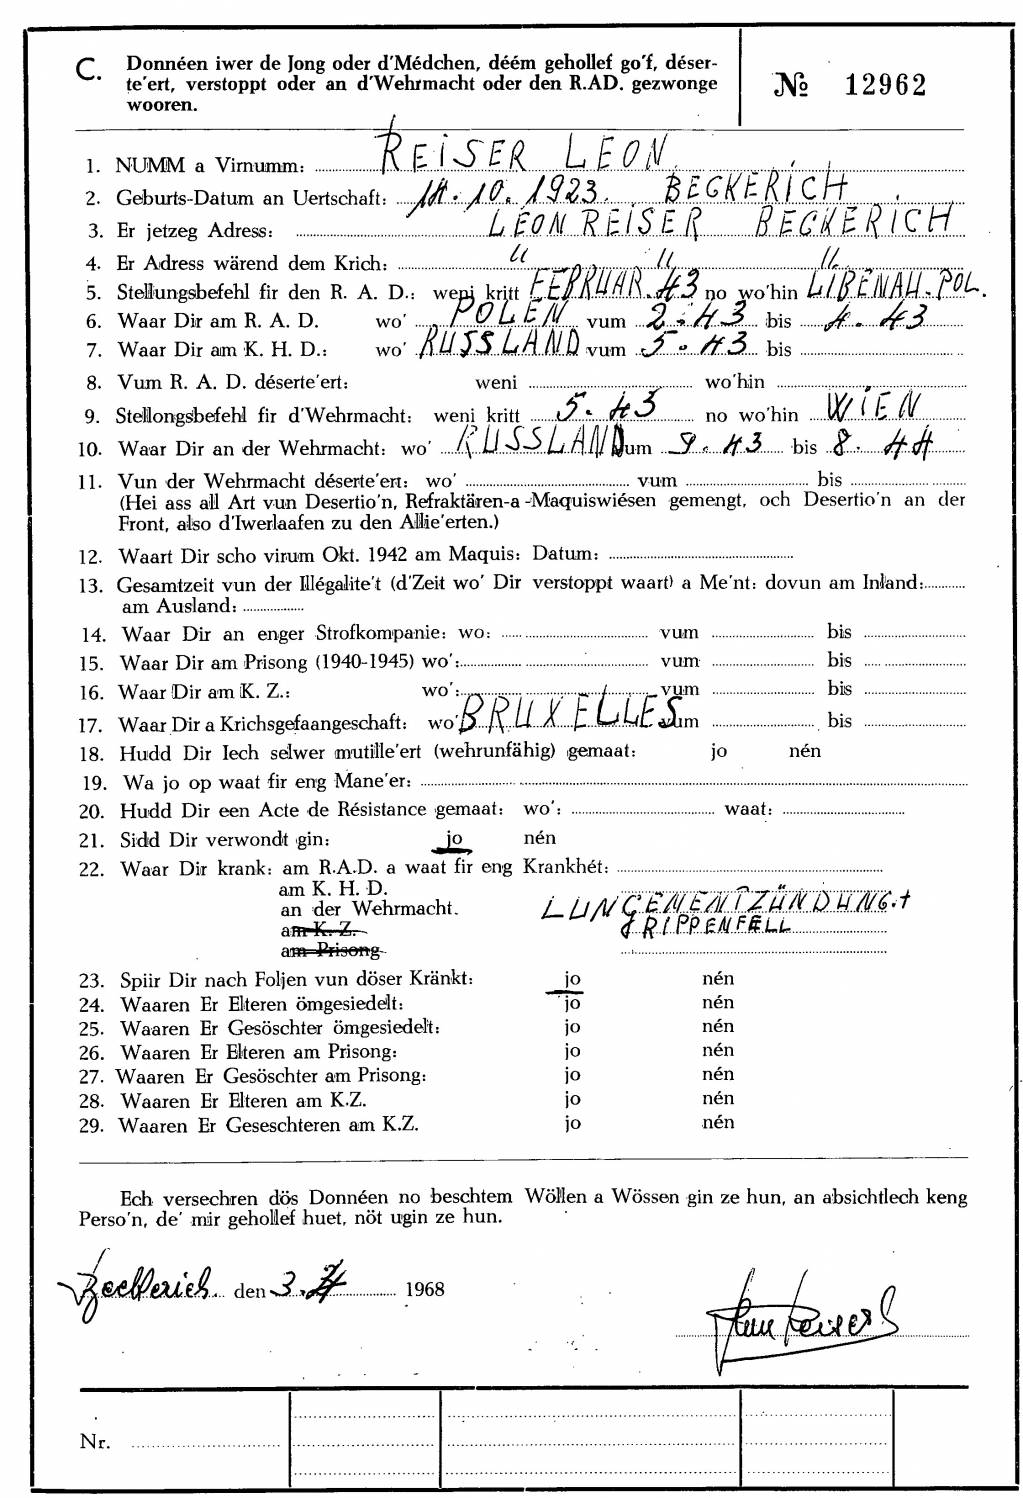 C. Donnéen iwer de Jong oder d'Médchen, déém gehollef go'f, déser-
te'ert, verstoppt oder an d'Wehrmacht oder den R.AD. gezwonge
wooren.
№ 12962
1. NUMM a Virnumm: REISER LEON
2. Geburts-Datum an Uertschaft: 14.10.1923. BECKERICH
3. Er jetzeg Adress: LEON REISER BECKERICH
4. Er Adress wärend dem Krich: " " "
5. Stellungsbefehl fir den R. A. D.: weni kritt FEBRUAR 43 no wo'hin LIBENAU. POL.
6. Waar Dir am R. A. D. wo' POLEN vum 2.43 bis 4.43
7. Waar Dir am K. H. D.: wo' RUSSLAND vum 5.43 bis
8. Vum R. A. D. déserte'ert: weni wo'hin
9. Stellongsbefehl fir d'Wehrmacht: weni kritt 5.43 no wo'hin WIEN
10. Waar Dir an der Wehrmacht: wo' RUSSLAND vum 9.43 bis 8.44
11. Vun der Wehrmacht déserte'ert: wo' vum bis
(Hei ass all Art vun Desertio'n, Refraktären-a-Maquiswiésen gemengt, och Desertio'n an der
Front, also d'Iwerlaafen zu den Allie'erten.)
12. Waart Dir scho virum Okt. 1942 am Maquis: Datum:
13. Gesamtzeit vun der Illégalite't (d'Zeit wo' Dir verstoppt waart) a Me'nt: dovun am Inland:
am Ausland:
14. Waar Dir an enger Strofkompanie: wo: vum bis
15. Waar Dir am Prisong (1940-1945) wo': vum bis
16. Waar Dir am K. Z.: wo': vum bis
17. Waar Dir a Krichsgefaangeschaft: wo' BRUXELLES vum bis
18. Hudd Dir Iech selwer mutille'ert (wehrunfähig) gemaat: jo nén
19. Wa jo op waat fir eng Mane'er:
20. Hudd Dir een Acte de Résistance gemaat: wo': waat:
21. Sidd Dir verwondt gin: jo nén
22. Waar Dir krank: am R.A.D. a waat fir eng Krankhét:
am K. H. D.
an der Wehrmacht. LUNGENENTZÜNDUNG. +
am K. Z. RIPPENFELL
am Prisong
23. Spiir Dir nach Foljen vun döser Kränkt: jo nén
24. Waaren Er Elteren ömgesiedelt: jo nén
25. Waaren Er Gesöschter ömgesiedelt: jo nén
26. Waaren Er Elteren am Prisong: jo nén
27. Waaren Er Gesöschter am Prisong: jo nén
28. Waaren Er Elteren am K.Z. jo nén
29. Waaren Er Geseschteren am K.Z. jo nén
Ech versechren dös Donnéen no beschtem Wöllen a Wössen gin ze hun, an absichtlech keng
Perso'n, de' mir gehollef huet, nöt ugin ze hun.
Beckerich. den 3. 1968
Reiser
Nr.